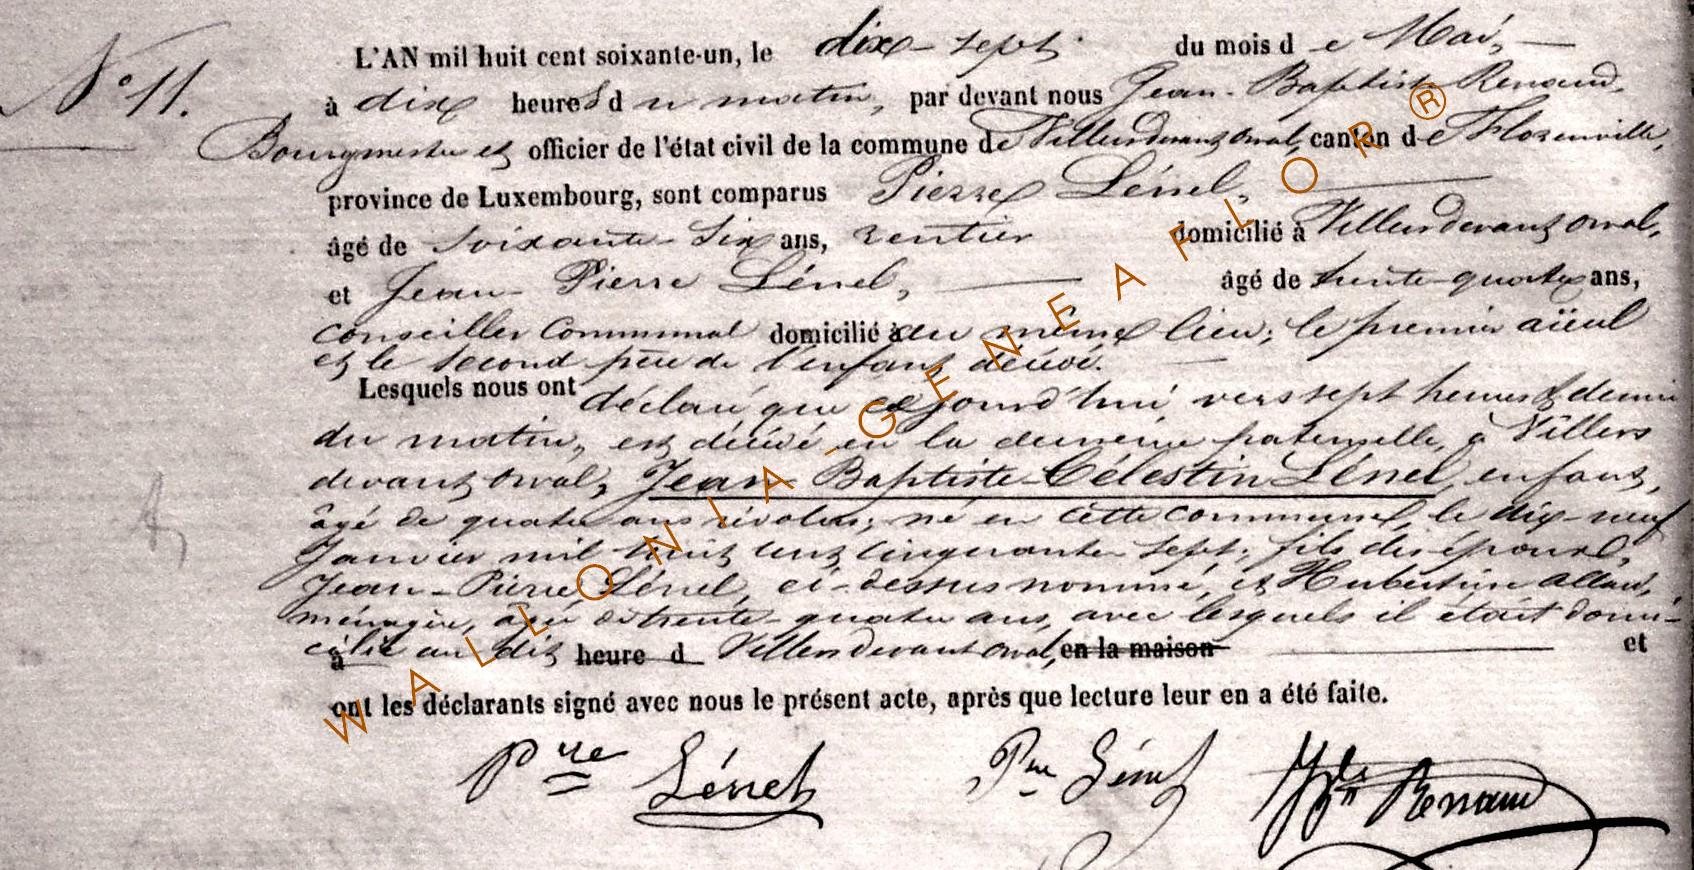 N° 11.
L'AN mil huit cent soixante-un, le dix-sept du mois de Mai,
à dix heures du matin, par devant nous Jean-Baptiste Renaud,
Bourgmestre et officier de l'état civil de la commune de Villersdevantorval, canton de Florenville,
province de Luxembourg, sont comparus Pierre Lénel,
âgé de soixante-six ans, rentier domicilié à Villersdevant orval,
et Jean-Pierre Lénel, âgé de trente-quatre ans,
conseiller Communal domicilié à du même lieu; le premier aïeul
et le second père de l'enfant décédé.
Lesquels nous ont déclaré que cejourd'hui, vers sept heures & demie
du matin, est décédé en la demeure paternelle, à Villers
devant orval, Jean-Baptiste-Célestin Lénel, enfant,
âgé de quatre ans révolus; né en cette commune, le dix-neuf
Janvier mil huit cent cinquante-sept; fils des époux
Jean-Pierre Lénel, ci-dessus nommé, et Hubertine
ménagère, âgée de trente-quatre ans, avec lesquels il était domi-
cilié à au dit heure d Villersdevant orval, en la maison et
ont les déclarants signé avec nous le présent acte, après que lecture leur en a été faite.
Prre Lénel Prre Lénel Renaud
WALLONIA-GENEAFLOR®